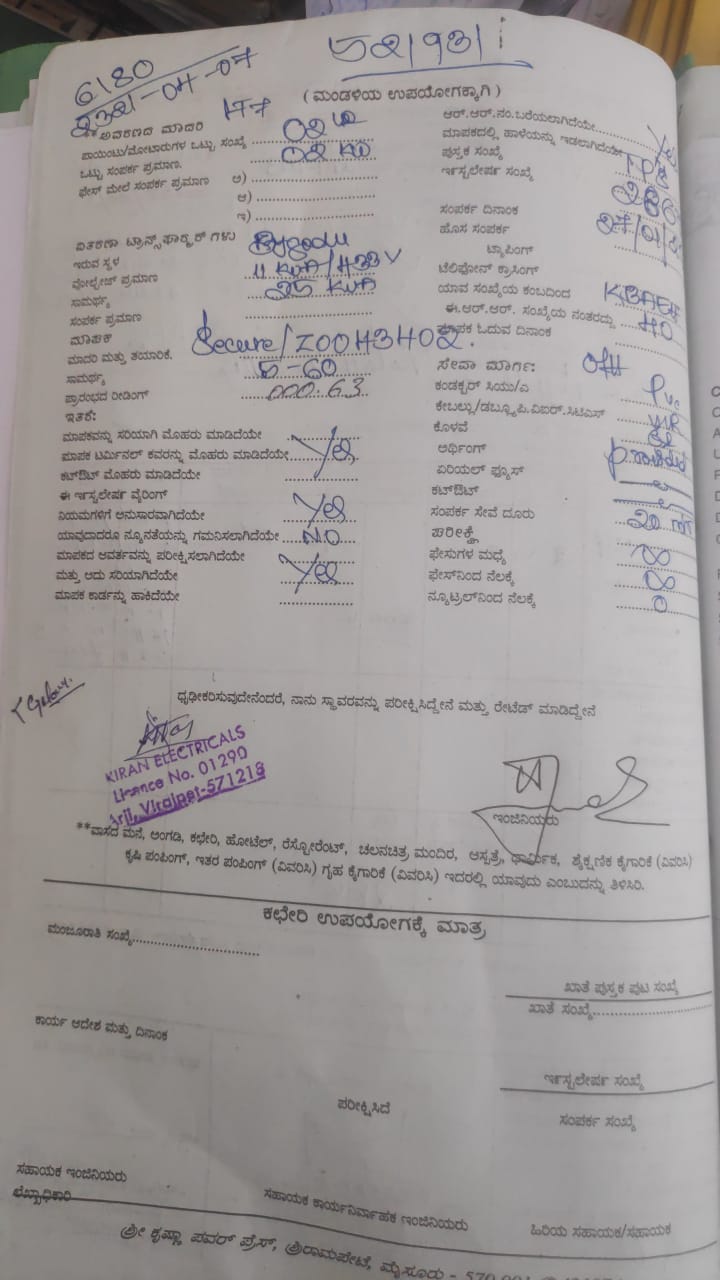 6180
521931
( ಮಂಡಳಿಯ ಉಪಯೋಗಕ್ಕಾಗಿ )
**ಆವರಣದ ಮಾದರಿ
ಪಾಯಿಂಟು/ಮೋಟಾರುಗಳ ಒಟ್ಟು ಸಂಖ್ಯೆ 02
ಒಟ್ಟು ಸಂಪರ್ಕ ಪ್ರಮಾಣ. 02 KW
ಫೇಸ್ ಮೇಲೆ ಸಂಪರ್ಕ ಪ್ರಮಾಣ ಅ)
ಆ)
ಇ)
ವಿತರಣಾ ಟ್ರಾನ್ಸ್‌ಫಾರ್ಮರ್ ಗಳು
ಇರುವ ಸ್ಥಳ
ವೋಲ್ಟೇಜ್ ಪ್ರಮಾಣ
ಸಾಮರ್ಥ್ಯ 25 KVA
ಸಂಪರ್ಕ ಪ್ರಮಾಣ
ಮಾಪಕ
ಮಾದರಿ ಮತ್ತು ತಯಾರಿಕೆ. Secure/
ಸಾಮರ್ಥ್ಯ 5-60
ಪ್ರಾರಂಭದ ರೀಡಿಂಗ್ 000.63
ಇತರೆ:
ಮಾಪಕವನ್ನು ಸರಿಯಾಗಿ ಮೊಹರು ಮಾಡಿದೆಯೇ
ಮಾಪಕ ಟರ್ಮಿನಲ್ ಕವರನ್ನು ಮೊಹರು ಮಾಡಿದೆಯೇ Yes
ಕಟ್‌ಔಟ್ ಮೊಹರು ಮಾಡಿದೆಯೇ
ಈ ಇನ್‌ಸ್ಟಲೇಷನ್ ವೈರಿಂಗ್
ನಿಯಮಗಳಿಗೆ ಅನುಸಾರವಾಗಿದೆಯೇ Yes
ಯಾವುದಾದರೂ ನ್ಯೂನತೆಯನ್ನು ಗಮನಿಸಲಾಗಿದೆಯೇ NO
ಮಾಪಕದ ಆವರ್ತವನ್ನು ಪರೀಕ್ಷಿಸಲಾಗಿದೆಯೇ
ಮತ್ತು ಅದು ಸರಿಯಾಗಿದೆಯೇ Yes
ಮಾಪಕ ಕಾರ್ಡನ್ನು ಹಾಕಿದೆಯೇ
ಆರ್.ಆರ್.ನಂ.ಬರೆಯಲಾಗಿದೆಯೇ
ಮಾಪಕದಲ್ಲಿ ಹಾಳೆಯನ್ನು ಇಡಲಾಗಿದೆಯೇ
ಪುಸ್ತಕ ಸಂಖ್ಯೆ
ಇನ್‌ಸ್ಟಲೇಷನ್ ಸಂಖ್ಯೆ
ಸಂಪರ್ಕ ದಿನಾಂಕ
ಹೊಸ ಸಂಪರ್ಕ
ಟ್ಯಾಪಿಂಗ್
ಟೆಲಿಫೋನ್ ಕ್ರಾಸಿಂಗ್
ಯಾವ ಸಂಖ್ಯೆಯ ಕಂಬದಿಂದ
ಈ.ಆರ್.ಆರ್. ಸಂಖ್ಯೆಯ ನಂತರದ್ದು
ಮಾಪಕ ಓದುವ ದಿನಾಂಕ
ಸೇವಾ ಮಾರ್ಗ: OH
ಕಂಡಕ್ಟರ್ ಸಿಯು/ಎ
ಕೇಬಲ್ಲು/ಡಬ್ಲ್ಯೂ.ಪಿ.ವಿಐಆರ್.ಸಿಟಿಎಸ್
ಕೊಳವೆ
ಅರ್ಥಿಂಗ್
ಏರಿಯಲ್ ಫ್ಯೂಸ್
ಕಟ್‌ಔಟ್
ಸಂಪರ್ಕ ಸೇವೆ ದೂರು 20
ಪರೀಕ್ಷೆ
ಫೇಸುಗಳ ಮಧ್ಯೆ ∞
ಫೇಸ್‌ನಿಂದ ನೆಲಕ್ಕೆ ∞
ನ್ಯೂಟ್ರಲ್‌ನಿಂದ ನೆಲಕ್ಕೆ 0
ಧೃಢೀಕರಿಸುವುದೇನೆಂದರೆ, ನಾನು ಸ್ಥಾವರವನ್ನು ಪರೀಕ್ಷಿಸಿದ್ದೇನೆ ಮತ್ತು ರೇಟೆಡ್ ಮಾಡಿದ್ದೇನೆ
KIRAN ELECTRICALS
Licence No. 01290
Virajpet-571218
ಇಂಜಿನಿಯರು
**ವಾಸದ ಮನೆ, ಅಂಗಡಿ, ಕಛೇರಿ, ಹೋಟೆಲ್, ರೆಸ್ಟೋರೆಂಟ್, ಚಲನಚಿತ್ರ ಮಂದಿರ, ಆಸ್ಪತ್ರೆ, ಧಾರ್ಮಿಕ, ಶೈಕ್ಷಣಿಕ ಕೈಗಾರಿಕೆ (ವಿವರಿಸಿ)
ಕೃಷಿ ಪಂಪಿಂಗ್, ಇತರ ಪಂಪಿಂಗ್ (ವಿವರಿಸಿ) ಗೃಹ ಕೈಗಾರಿಕೆ (ವಿವರಿಸಿ) ಇದರಲ್ಲಿ ಯಾವುದು ಎಂಬುದನ್ನು ತಿಳಿಸಿರಿ.
ಕಛೇರಿ ಉಪಯೋಗಕ್ಕೆ ಮಾತ್ರ
ಮಂಜೂರಾತಿ ಸಂಖ್ಯೆ
ಖಾತೆ ಪುಸ್ತಕ ಪುಟ ಸಂಖ್ಯೆ
ಖಾತೆ ಸಂಖ್ಯೆ
ಕಾರ್ಯ ಆದೇಶ ಮತ್ತು ದಿನಾಂಕ
ಇನ್‌ಸ್ಟಲೇಷನ್ ಸಂಖ್ಯೆ
ಪರೀಕ್ಷಿಸಿದೆ
ಸಂಪರ್ಕ ಸಂಖ್ಯೆ
ಸಹಾಯಕ ಇಂಜಿನಿಯರು
ಲೆಖ್ಖಾಧಿಕಾರಿ
ಸಹಾಯಕ ಕಾರ್ಯನಿರ್ವಾಹಕ ಇಂಜಿನಿಯರು
ಹಿರಿಯ ಸಹಾಯಕ/ಸಹಾಯಕ
ಶ್ರೀ ಕೃಷ್ಣಾ ಪವರ್ ಪ್ರೆಸ್, ಶ್ರೀರಾಮಪೇಟೆ, ಮೈಸೂರು - 570 001